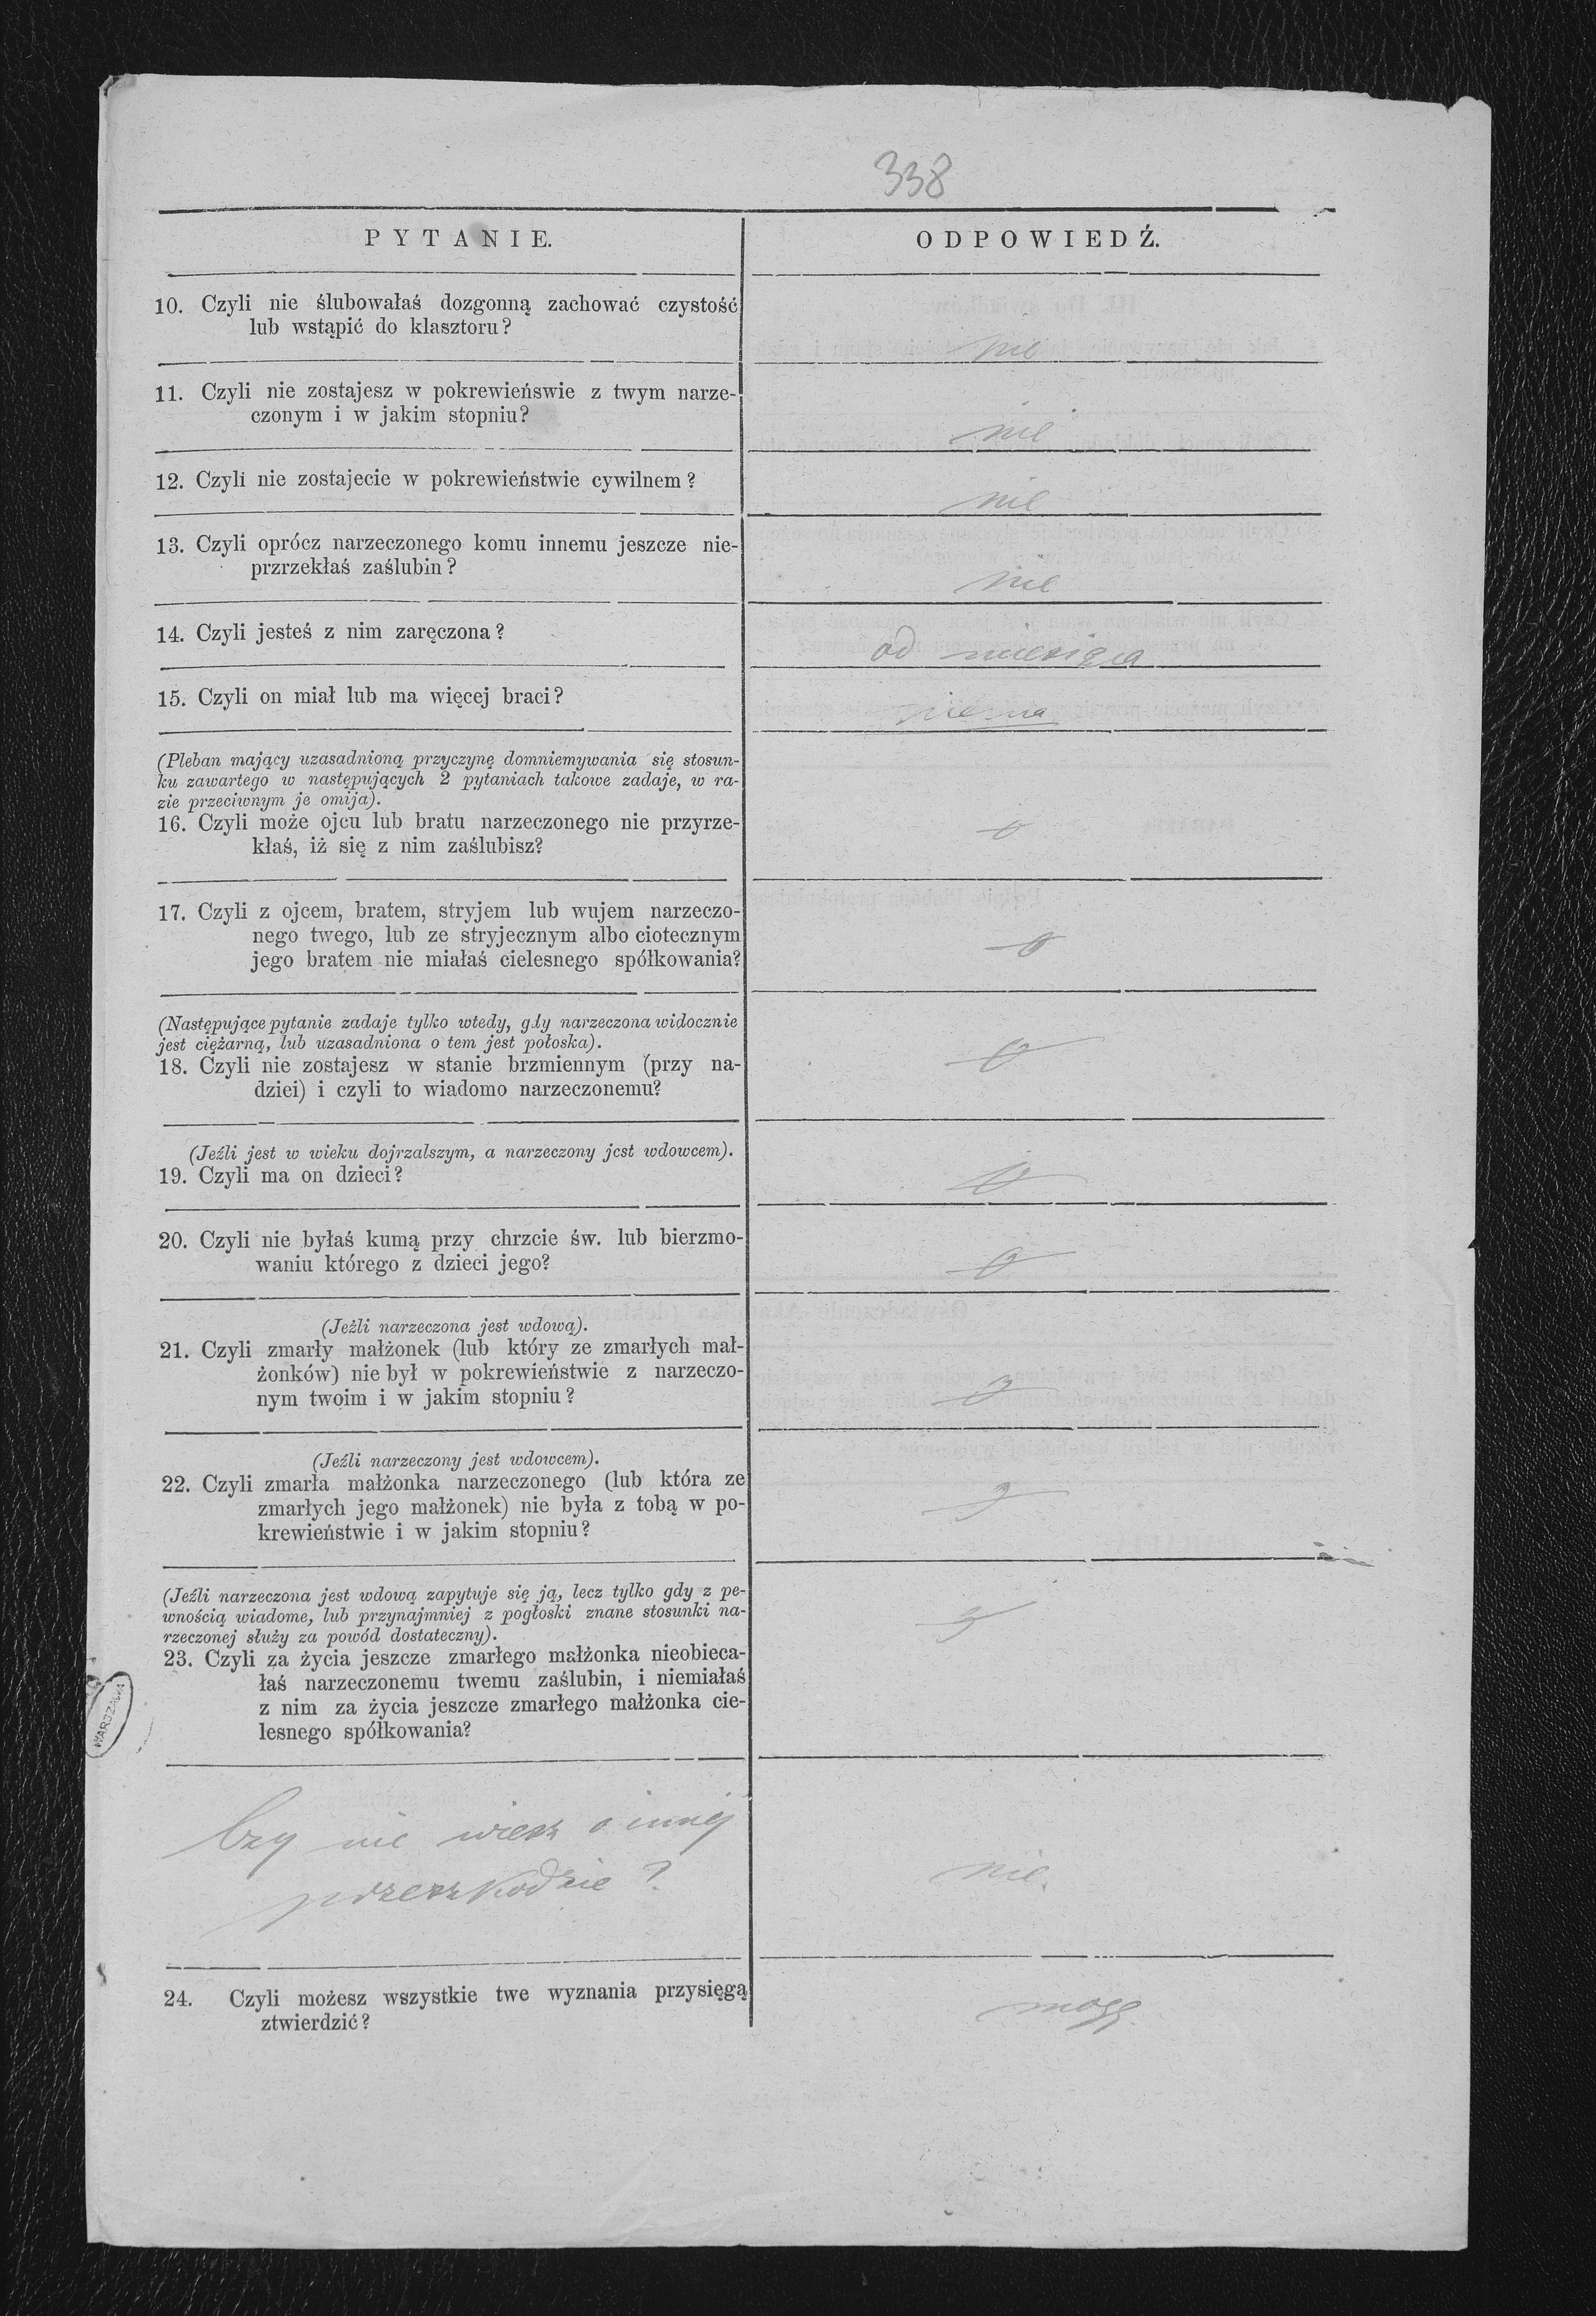 338
PYTANIE.
ODPOWIEDŹ.
10. Czyli nie ślubowałaś dozgonną zachować czystość
lub wstąpić do klasztoru?
nie
11. Czyli nie zostajesz w pokrewieńswie z twym narze-
czonym i w jakim stopniu?
nie
12. Czyli nie zostajecie w pokrewieństwie cywilnem?
nie
13. Czyli oprócz narzeczonego komu innemu jeszcze nie-
przrzekłaś zaślubin?
nie
14. Czyli jesteś z nim zaręczona?
od miesiąca
15. Czyli on miał lub ma więcej braci?
niema
(Pleban mający uzasadnioną przyczynę domniemywania się stosun-
ku zawartego w następujących 2 pytaniach takowe zadaje, w ra-
zie przeciwnym je omija).
16. Czyli może ojcu lub bratu narzeczonego nie przyrze-
kłaś, iż się z nim zaślubisz?
17. Czyli z ojcem, bratem, stryjem lub wujem narzeczo-
nego twego, lub ze stryjecznym albo ciotecznym
jego bratem nie miałaś cielesnego spółkowania?
(Następujące pytanie zadaje tylko wtedy, gdy narzeczona widocznie
jest ciężarną, lub uzasadniona o tem jest połoska).
18. Czyli nie zostajesz w stanie brzmiennym (przy na-
dziei) i czyli to wiadomo narzeczonemu?
(Jeźli jest w wieku dojrzalszym, a narzeczony jest wdowcem).
19. Czyli ma on dzieci?
20. Czyli nie byłaś kumą przy chrzcie św. lub bierzmo-
waniu którego z dzieci jego?
(Jeźli narzeczona jest wdową).
21. Czyli zmarły małżonek (lub który ze zmarłych mał-
żonków) nie był w pokrewieństwie z narzeczo-
nym twoim i w jakim stopniu?
(Jeźli narzeczony jest wdowcem).
22. Czyli zmarła małżonka narzeczonego (lub która ze
zmarłych jego małżonek) nie była z tobą w po-
krewieństwie i w jakim stopniu?
(Jeźli narzeczona jest wdową zapytuje się ją, lecz tylko gdy z pe-
wnością wiadome, lub przynajmniej z pogłoski znane stosunki na-
rzeczonej służy za powód dostateczny).
23. Czyli za życia jeszcze zmarłego małżonka nieobieca-
łaś narzeczonemu twemu zaślubin, i niemiałaś
z nim za życia jeszcze zmarłego małżonka cie-
lesnego spółkowania?
WARSZAWA
Czy nie wiesz o innej
przeszkodzie?
nie.
24. Czyli możesz wszystkie twe wyznania przysięgą
ztwierdzić?
mogę.